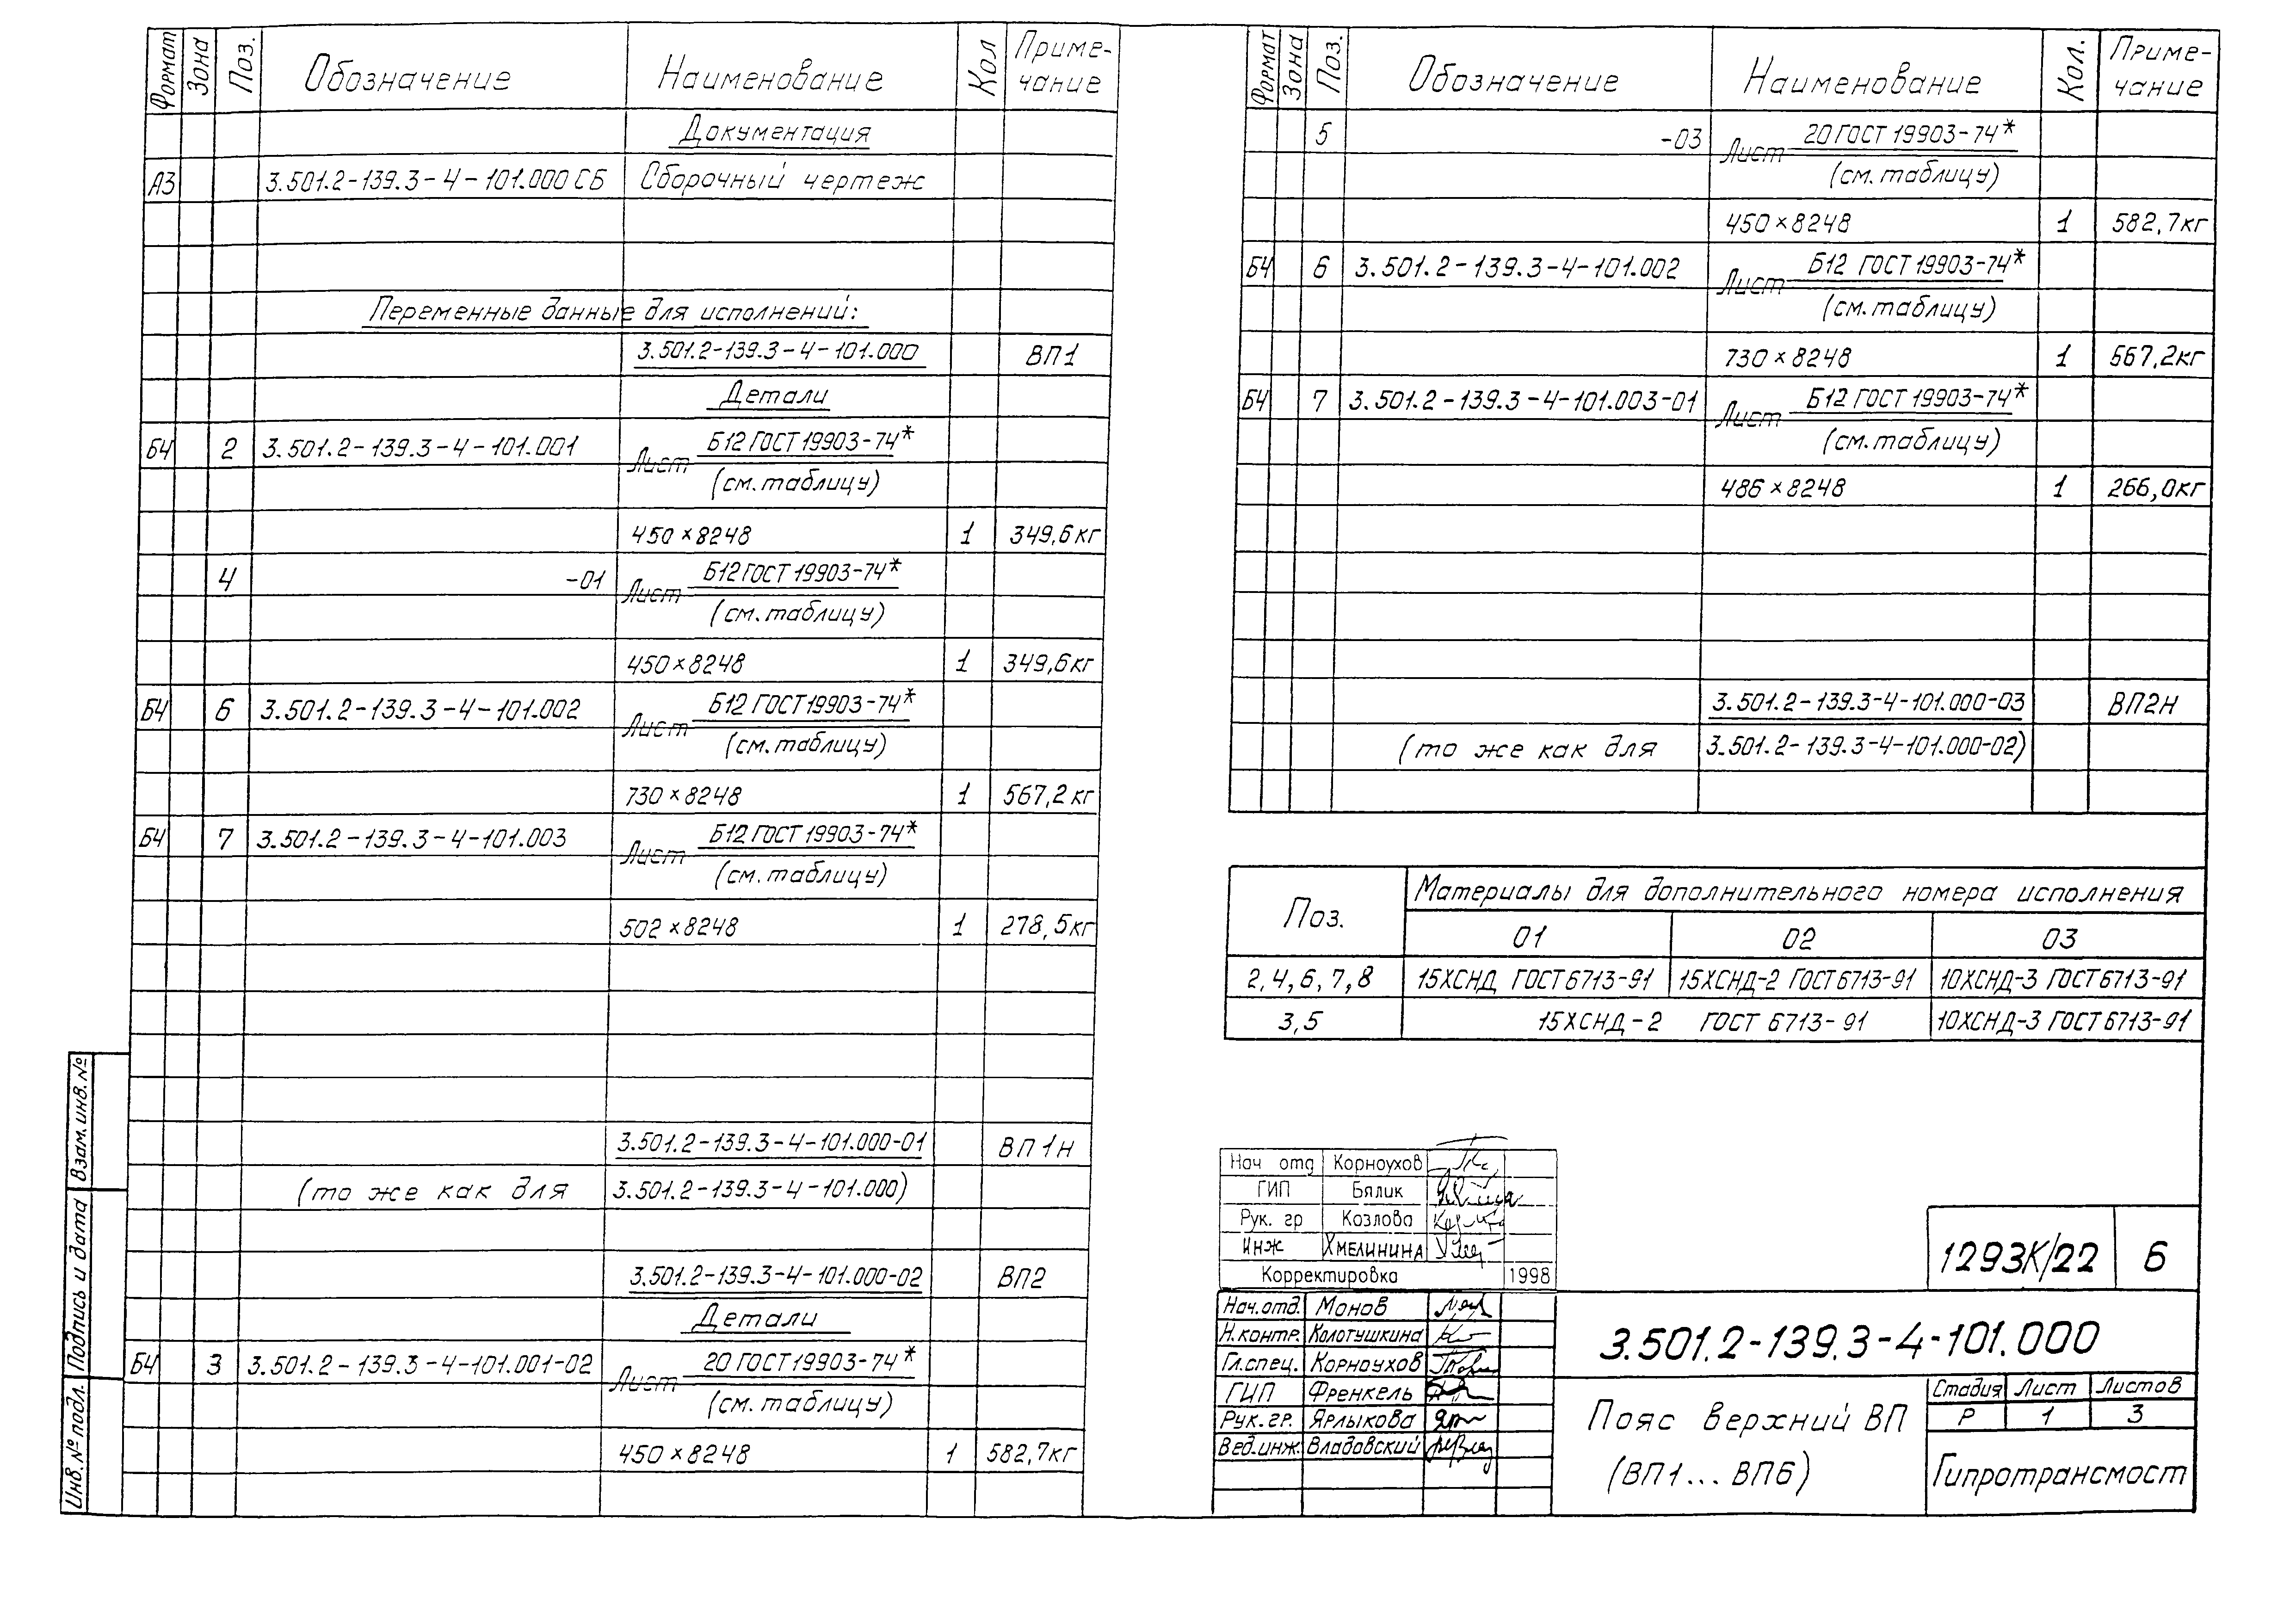 Формат Зона Поз. Обозначение Наименование Кол Приме-
чание
Документация
А3 3.501.2-139.3-4-101.000 СБ Сборочный чертеж
Переменные данные для исполнений:
3.501.2-139.3-4-101.000 ВП1
Детали
Б4 2 3.501.2-139.3-4-101.001 Лист Б12 ГОСТ 19903-74*
(см. таблицу)
450×8248 1 349,6 кг
4 -01 Лист Б12 ГОСТ 19903-74*
(см. таблицу)
450×8248 1 349,6 кг
Б4 6 3.501.2-139.3-4-101.002 Лист Б12 ГОСТ 19903-74*
(см. таблицу)
730×8248 1 567,2 кг
Б4 7 3.501.2-139.3-4-101.003 Лист Б12 ГОСТ 19903-74*
(см. таблицу)
502×8248 1 278,5 кг
3.501.2-139.3-4-101.000-01 ВП1н
(то же как для 3.501.2-139.3-4-101.000)
3.501.2-139.3-4-101.000-02 ВП2
Детали
Б4 3 3.501.2-139.3-4-101.001-02 Лист 20 ГОСТ 19903-74*
(см. таблицу)
450×8248 1 582,7 кг
Взам. инв. №
Подпись и дата
Инв. № подл.
Формат Зона Поз. Обозначение Наименование Кол. Приме-
чание
5 -03 Лист 20 ГОСТ 19903-74*
(см. таблицу)
450×8248 1 582,7 кг
Б4 6 3.501.2-139.3-4-101.002 Лист Б12 ГОСТ 19903-74*
(см. таблицу)
730×8248 1 567,2 кг
Б4 7 3.501.2-139.3-4-101.003-01 Лист Б12 ГОСТ 19903-74*
(см. таблицу)
486×8248 1 266,0 кг
3.501.2-139.3-4-101.000-03 ВП2н
(то же как для 3.501.2-139.3-4-101.000-02)
Поз. Материалы для дополнительного номера исполнения
01 02 03
2, 4, 6, 7, 8 15ХСНД ГОСТ 6713-91 15ХСНД-2 ГОСТ 6713-91 10ХСНД-3 ГОСТ 6713-91
3, 5 15ХСНД-2 ГОСТ 6713-91 10ХСНД-3 ГОСТ 6713-91
Нач отд Корноухов
ГИП Бялик
Рук. гр Козлова
Инж Хмелинина
Корректировка 1998
1293К/22 6
Нач. отд. Монов
Н. контр. Колотушкина
Гл. спец. Корноухов
ГИП Френкель
Рук. гр. Ярлыкова
Вед. инж. Владовский
3.501.2-139.3-4-101.000
Пояс верхний ВП
(ВП1... ВП6)
Стадия Лист Листов
Р 1 3
Гипротрансмост